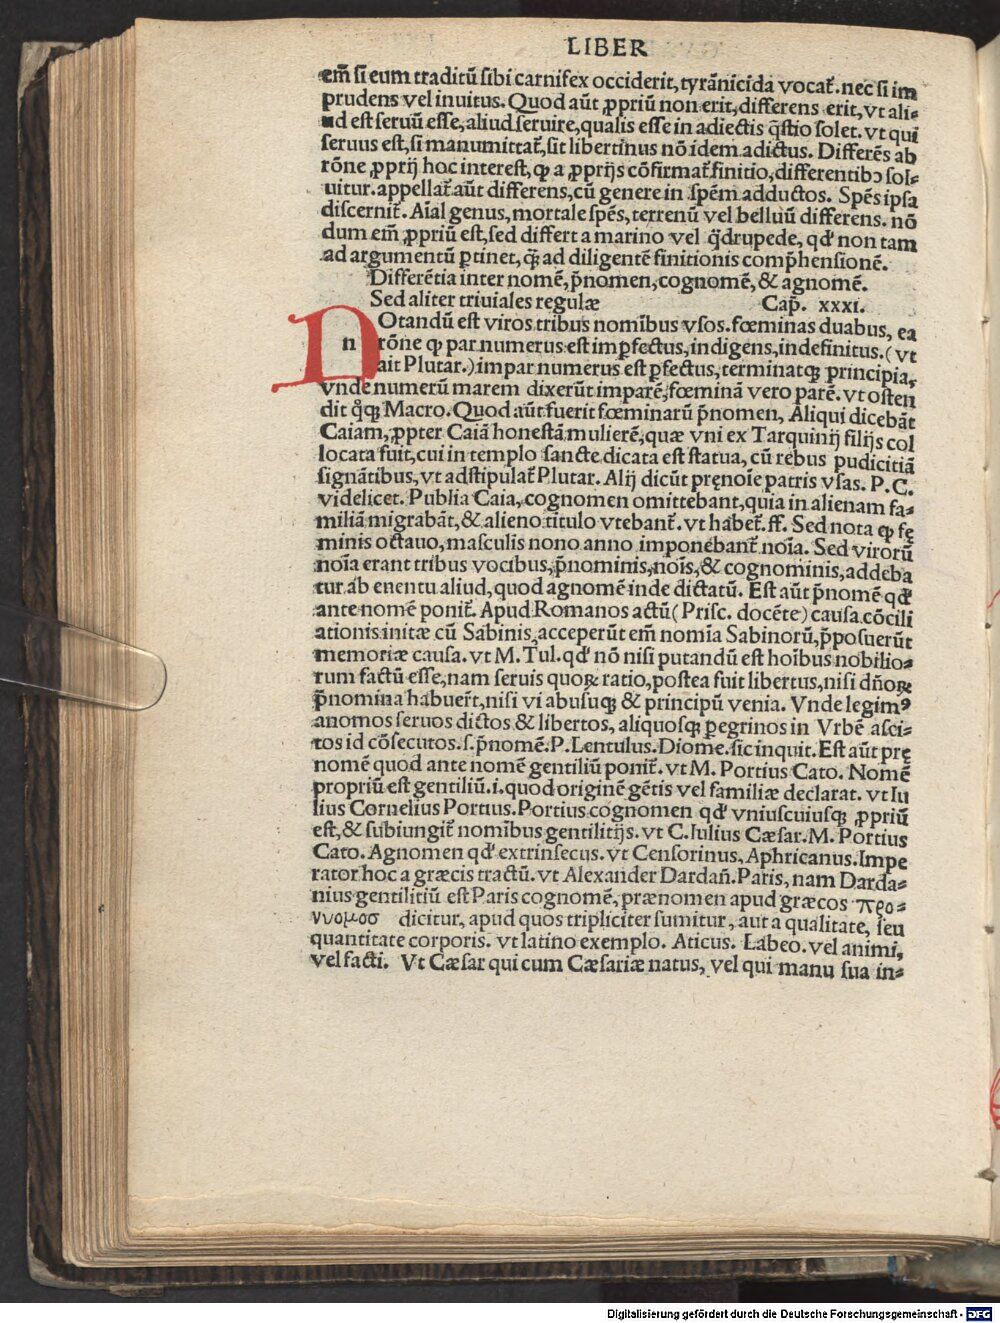 LIBER
em̄ si eum traditū sibi carnifex occiderit, tyrānicida vocat᷑. nec si im
prudens vel inuitus. Quod aūt ꝓpriū non erit, differens erit, vt ali⸗
ud est seruū esse, aliud seruire, qualis esse in adiectis q̄stio solet. vt qui
seruus est, si manumittat᷑, sit libertinus nō idem adictus. Differēs ab
rōne ꝓprij hoc interest, ꝙ a ꝓprijs cōfirmat᷑ finitio, differentibꝰ sol⸗
uitur. appellat᷑ aūt differens, cū genere in spēm adductos. Spēs ipsa
discernit᷑. Aīal genus, mortale spēs, terrenū vel belluū differens. nō
dum em̄ ꝓpriū est, sed differt a marino vel q̈drupede, qd' non tam
ad argumentū ꝑtinet, q̄ ad diligentē finitionis comp̄hensionē.
Differētia inter nomē, p̄nomen, cognomē, & agnomē.
Sed aliter triuiales regulæ Cap̄. xxxi.
n Otandū est viros tribus nomībus vsos. fœminas duabus, ea
rōne ꝙ par numerus est imꝑfectus, indigens, indefinitus. (vt
ait Plutar.) impar numerus est ꝑfectus, terminatqꝫ principia,
vnde numerū marem dixerūt imparē, fœminā vero parē. vt osten
dit q̊qꝫ Macro. Quod aūt fuerit fœminarū p̄nomen, Aliqui dicebāt
Caiam, ꝓpter Caiā honestā mulierē, quæ vni ex Tarquinij filijs col
locata fuit, cui in templo sancte dicata est statua, cū rebus pudicitiā
signātibus, vt adstipulat᷑ Plutar. Alij dicūt pręnoīe patris vsas. P. C.
videlicet. Publia Caia, cognomen omittebant, quia in alienam fa⸗
miliā migrabāt, & alieno titulo vtebant᷑. vt habet᷑. ff. Sed nota ꝙ fę
minis octauo, masculis nono anno imponebant᷑ noīa. Sed virorū
noīa erant tribus vocibus, p̄nominis, noīs, & cognominis, addeba
tur ab euentu aliud, quod agnomē inde dictatū. Est aūt p̄nomē qd'
ante nomē ponit᷑. Apud Romanos actū (Prisc. docēte) causa cōcili
ationis initæ cū Sabinis, acceperūt em̄ nomīa Sabinorū, p̄posuerūt
memoriæ causa. vt M. Tul. qd' nō nisi putandū est hoībus nobilio⸗
rum factū esse, nam seruis quoꝝ ratio, postea fuit libertus, nisi dn̄oꝝ
p̄nomina habuer̄t, nisi vi abusuqꝫ & principū venia. Vnde legimꝰ
anomos seruos dictos & libertos, aliquosqꝫ ꝑegrinos in Vrbē asci⸗
tos id cōsecutos. s. p̄nomē. P. Lentulus. Diome. sic inquit. Est aūt prę
nomē quod ante nomē gentiliū ponit᷑. vt M. Portius Cato. Nomē
propriū est gentiliū. i. quod originē gētis vel familiæ declarat. vt Iu
lius Cornelius Portius. Portius cognomen qd' vniuscuiusqꝫ ꝓpriū
est, & subiungit᷑ nomībus gentilitijs. vt C. Iulius Cæsar. M. Portius
Cato. Agnomen qd' extrinsecus. vt Censorinus, Aphricanus. Impe
rator hoc a græcis tractū. vt Alexander Dardan̄. Paris, nam Darda⸗
nius gentilitiū est Paris cognomē, prænomen apud græcos προ⸗
ννομοσ dicitur, apud quos tripliciter sumitur, aut a qualitate, seu
quantitate corporis. vt latino exemplo. Aticus. Labeo. vel animi,
vel facti. Vt Cæsar qui cum Cæsariæ natus, vel qui manu sua in⸗
Digitalisierung gefördert durch die Deutsche Forschungsgemeinschaft - DFG